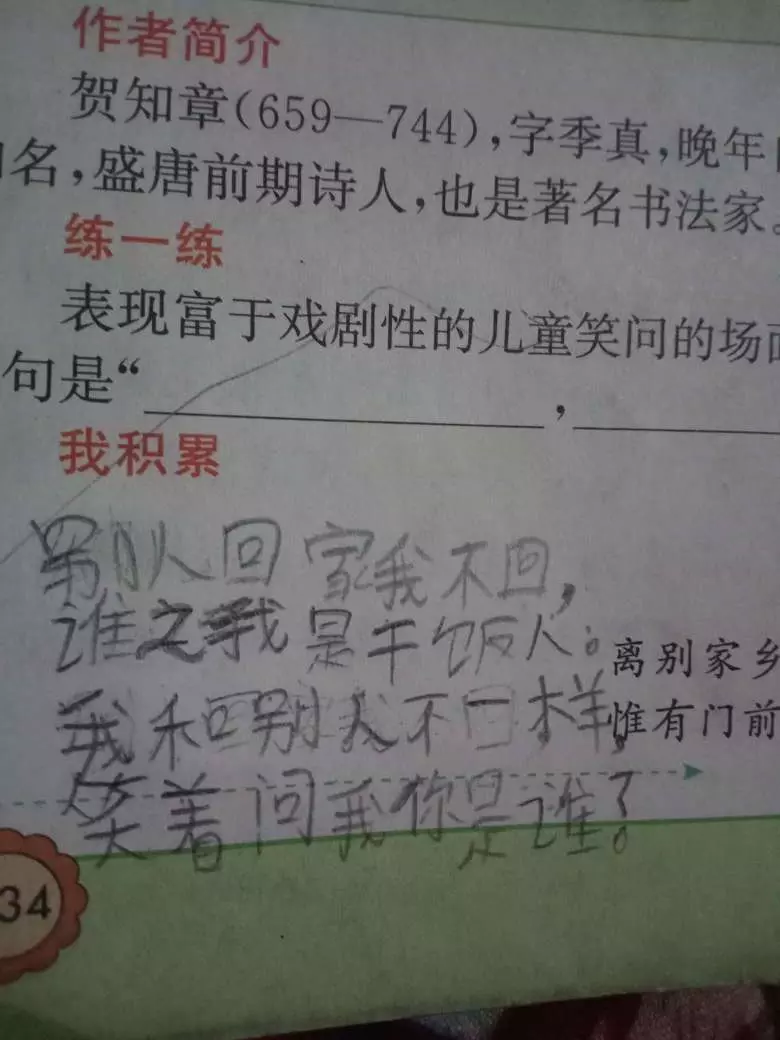 作者简介
贺知章(659—744),字季真,晚年
名,盛唐前期诗人,也是著名书法家。
练一练
表现富于戏剧性的儿童笑问的场面
句是“ ,
我积累
别人回家我不回,
谁之我是干饭人。
离别家乡
我和别人不一样,
惟有门前
笑着问我你是谁?
34